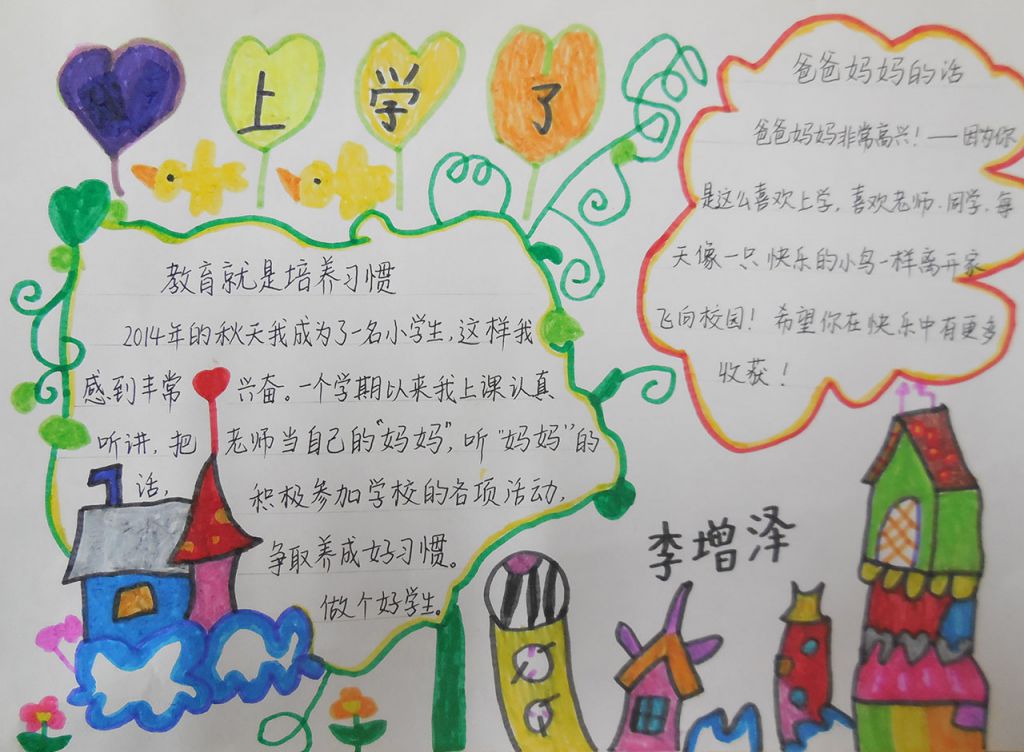 上学了
教育就是培养习惯
2014年的秋天我成为了一名小学生,这样我
感到丰常兴奋。一个学期以来我上课认真
听讲,把老师当自己的“妈妈”,听“妈妈”的
话,积极参加学校的各项活动,
争取养成好习惯。
做个好学生。
爸爸妈妈的话
爸爸妈妈非常高兴!——因为你
是这么喜欢上学,喜欢老师、同学,每
天像一只快乐的小鸟一样离开家
飞向校园!希望你在快乐中有更多
收获!
李增泽